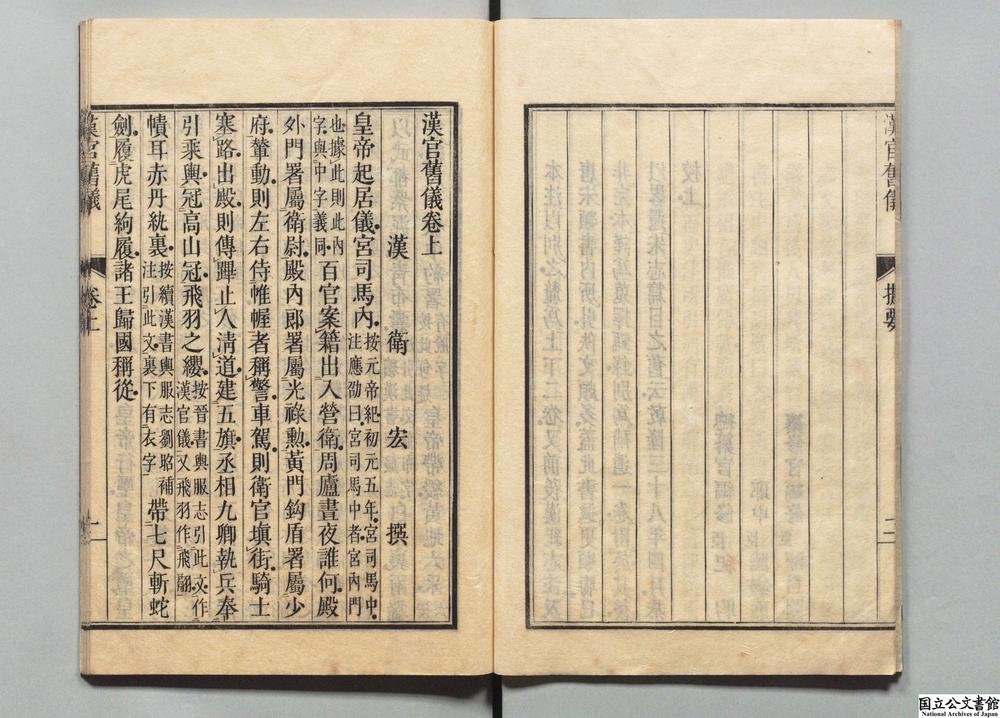 漢官舊儀
提要
二
漢官舊儀卷上
漢　衛　宏　撰
皇帝起居儀宮司馬內按元帝紀初元五年宮司馬中注應劭曰宮司馬中者宮內門
也據此則此內字與中字義同百官案籍出入營衛周廬晝夜誰何殿
外門署屬衛尉殿內郎署屬光祿勲黃門鈎盾署屬少
府輦動則左右侍帷幄者稱警車駕則衛官填街騎士
塞路出殿則傳蹕止人淸道建五旗丞相九卿執兵奉
引乘輿冠高山冠飛羽之纓按晉書輿服志引此文作漢官儀又飛羽作飛翮
幘耳赤丹紈裏按續漢書輿服志劉昭補注引此文裏下有衣字帶七尺斬蛇
劍履虎尾絇履諸王歸國稱從
漢官舊儀
卷上
一
国立公文書館
National Archives of Japan